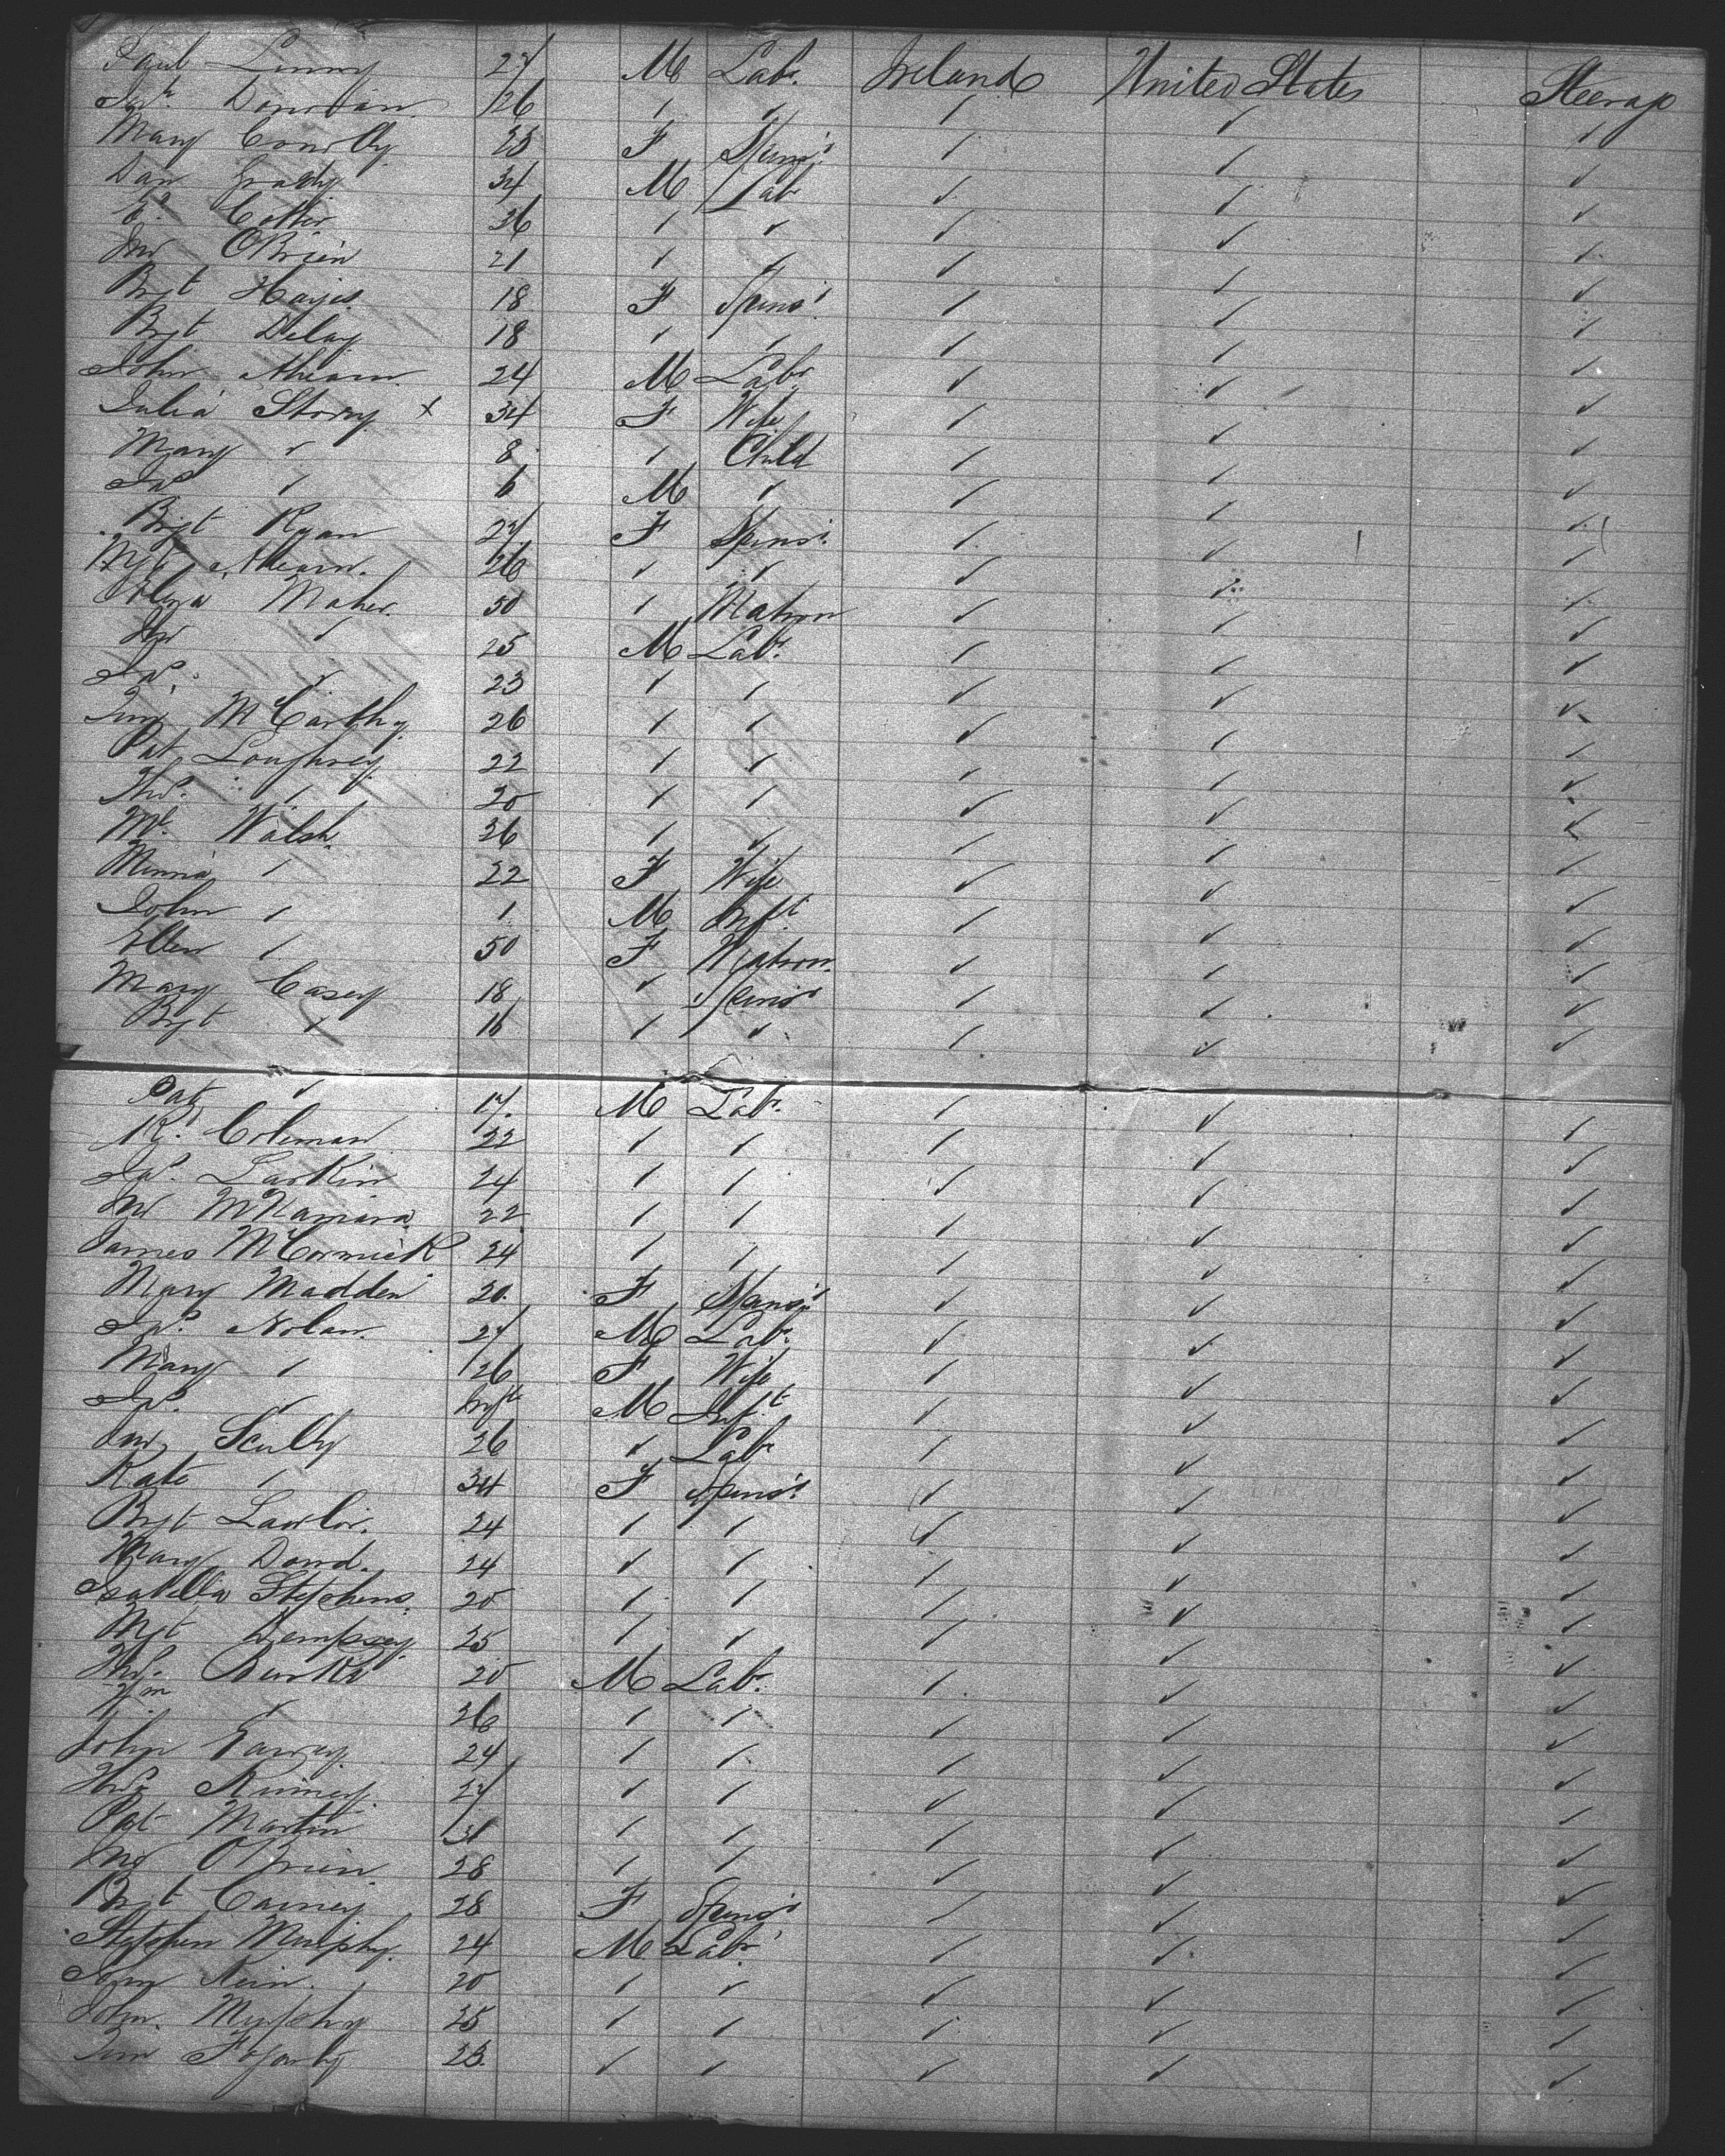 Paul 27 M Labr. Ireland United States Steerage
Jas. Donovan 26 ✓ ✓ ✓ ✓ ✓
Mary Connolly 23 F Spinsr. ✓ ✓ ✓
Dan Grady 34 M Labr ✓ ✓ ✓
Cotter 36 ✓ ✓ ✓ ✓ ✓
Jno OBrien 21 ✓ ✓ ✓ ✓ ✓
Brgt Hayes 18 F Spinsr. ✓ ✓ ✓
Brgt Delay 18 ✓ ✓ ✓ ✓ ✓
John Ahearn 24 M Labr ✓ ✓ ✓
Julia Story x 34 F Wife ✓ ✓ ✓
Mary ✓ 8 ✓ Child ✓ ✓ ✓
Jas ✓ 6 M ✓ ✓ ✓ ✓
Brgt Ryan 27 F Spinsr. ✓ ✓ ✓
Mgt Ahearn. 26 ✓ ✓ ✓ ✓ ✓
Maher. 50 ✓ Matron ✓ ✓ ✓
Jno ✓ 25 M Labr. ✓ ✓ ✓
Jas. ✓ 23 ✓ ✓ ✓ ✓ ✓
Tim McCarthy 26 ✓ ✓ ✓ ✓ ✓
Pat Loughrey 22 ✓ ✓ ✓ ✓ ✓
Ths. ✓ 20 ✓ ✓ ✓ ✓ ✓
Ml. Walsh. 36 ✓ ✓ ✓ ✓ ✓
Minnie ✓ 22 F Wife ✓ ✓ ✓
John ✓ 1 M Inft. ✓ ✓ ✓
Ellen ✓ 50 F Matron. ✓ ✓ ✓
Mary Casey 18 ✓ Spinsr ✓ ✓ ✓
Brgt ✓ 16 ✓ ✓ ✓ ✓ ✓
Pat ✓ 17. M Labr. ✓ ✓ ✓
Rd. Coleman 22 ✓ ✓ ✓ ✓ ✓
Jas. Larkin 24 ✓ ✓ ✓ ✓ ✓
Jno McNamara 22 ✓ ✓ ✓ ✓ ✓
James McCormick 24 ✓ ✓ ✓ ✓ ✓
Mary Madden 20. F Spinsr ✓ ✓ ✓
Jas. Nolan. 27 M Labr. ✓ ✓ ✓
Mary ✓ 26 F Wife ✓ ✓ ✓
Jas. ✓ Inft M Inft ✓ ✓ ✓
Scully 26 ✓ Labr ✓ ✓ ✓
Kate ✓ 34 F Spinsr. ✓ ✓ ✓
Brgt Lawlor. 24 ✓ ✓ ✓ ✓ ✓
Mary Dowd. 24 ✓ ✓ ✓ ✓ ✓
Isabella Stephens. 20 ✓ ✓ ✓ ✓ ✓
Mgt Dempsey 25 ✓ ✓ ✓ ✓ ✓
Ths. Burke 20 M Labr. ✓ ✓ ✓
Wm ✓ 26 ✓ ✓ ✓ ✓ ✓
John 24 ✓ ✓ ✓ ✓ ✓
Ths 27 ✓ ✓ ✓ ✓ ✓
Pat Martin 31 ✓ ✓ ✓ ✓ ✓
Jno OBrien 28 ✓ ✓ ✓ ✓ ✓
Brgt Carney 28 F Spinsr ✓ ✓ ✓
Stephen Murphy. 24 M Labr ✓ ✓ ✓
20 ✓ ✓ ✓ ✓ ✓
John. Murphy 25 ✓ ✓ ✓ ✓ ✓
Tim Fogarty 23. ✓ ✓ ✓ ✓ ✓